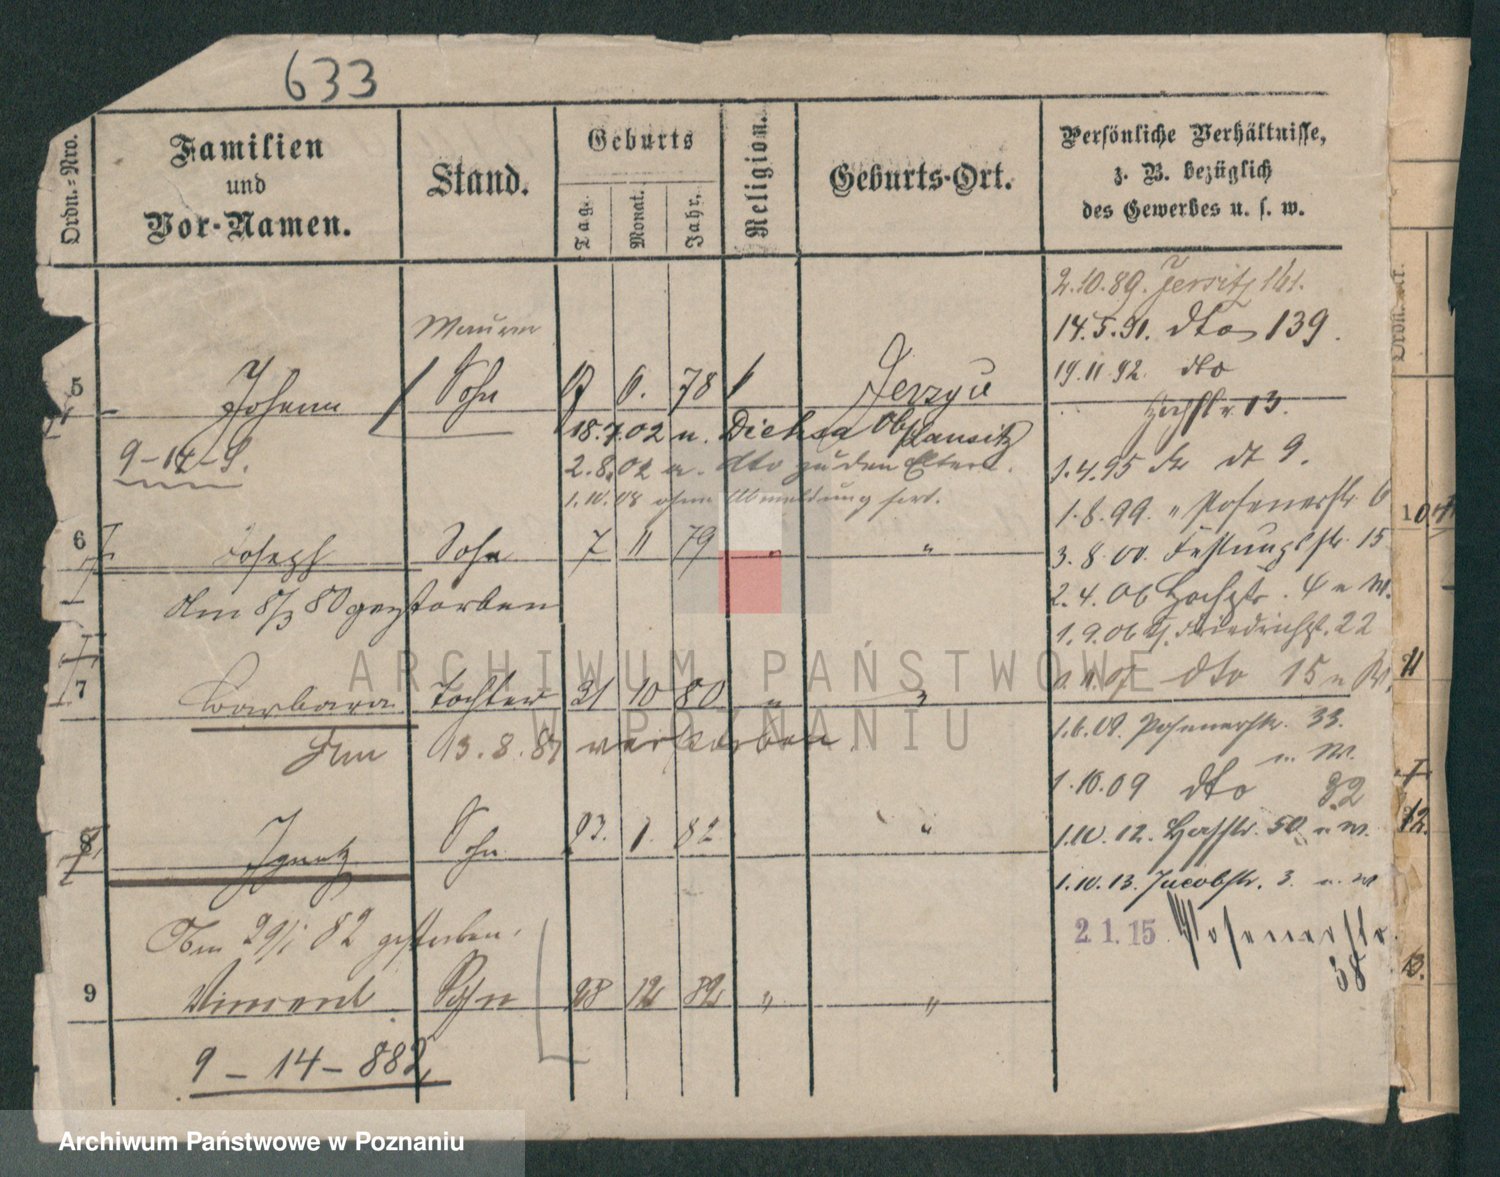 633
Ordn.=Nro.
Familien
und
Vor-Namen.
Stand.
Geburts
Tag.
Monat.
Jahr.
Religion.
Geburts-Ort.
Persönliche Verhältnisse,
z. B. bezüglich
des Gewerbes u. s. w.
2.10.89. Jersitz 161.
14.5.91. dto 139.
19.11.92. dto
Hochstr. 13.
1.4.95 9.
1.8.99. " Posenerstr. 6
3.8.00. Festungsstr. 15
2.4.06 Hochstr. 4 n W.
1.9.06 Friedrichstr. 22
dto 15 n W.
1.6.08. Posenerstr. 33.
n. W.
1.10.09 dto 32
1.10.12. 50 n W.
1.10.13. Jacobstr. 3. n. W
2.1.15. Posenerstr.
38
Maurer
5 Johann Sohn 6. 78 Jerzyce
18.7.02 n. Ob Lausitz
9-14-
2.8.02 a. dto zu den Eltern.
1.10.08 ohne Abmeldung fort.
6 Joseph Sohn 7 11 79 " "
Am 8/3 80 gestorben
7 Barbara Tochter 21 10 80 " "
Am 13.8.81 verstorben
8 Ignatz Sohn 23. 1. 82 "
Am 29/1 82 gestorben.
9 Vincent Sohn 28 12 82 " "
9-14-882
ARCHIWUM PAŃSTWOWE
W POZNANIU
11
12
13.
Archiwum Państwowe w Poznaniu